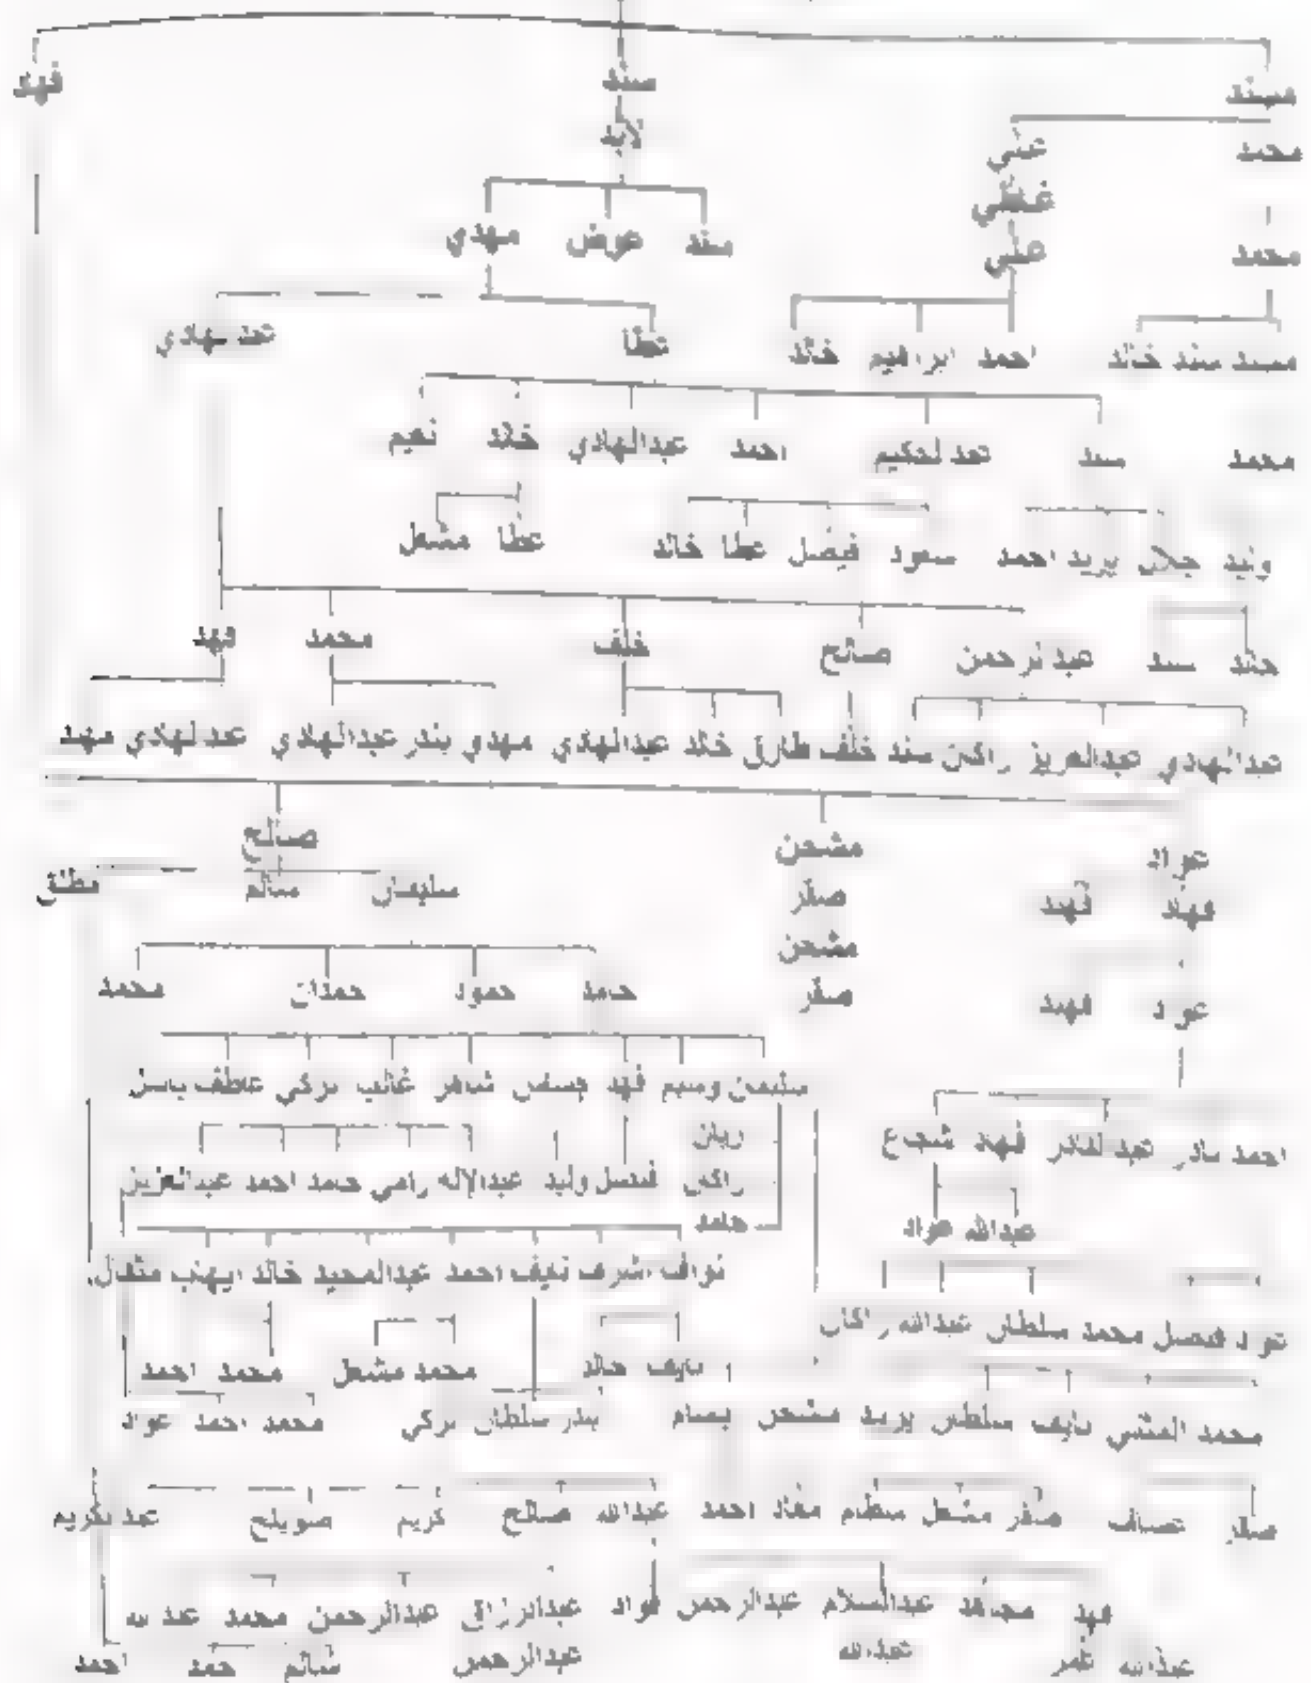 مسند صند فهد
لابد
محمد علي
غظي
مهدي عوض سند
محمد علي
عطا
مسند سند خالد احمد ابراهيم خالد
محمد سند احمد عبدالهادي خالد نعيم
وليد جلال يزيد احمد سعود فيصل عطا خالد عطا مشعل
خالد سند عبدالرحمن صالح خلف محمد فهد
عبدالهادي عبدالعزيز راكان سند خلف طارق خالد عبدالهادي مهدي بندر عبدالهادي عبدالهادي فهد
عواد مشحن صالح
فهاد فهيد صقر سليمان سالم مطلق
مشحن
حامد حمود حمدان محمد
عواد فهيد صقر
سليمان وسيم فهد شاهر غالب تركي عاطف باسل
احمد نادر عبدالقادر فهد شجاع ريان
راكان فيصل وليد عبدالاله رامي حامد احمد عبدالعزيز
عبدالله عواد حامد
نواف اشرف نايف احمد عبدالمجيد خالد ايهاب مثقال
عواد فيصل محمد سلطان عبدالله راكان
نايف خالد محمد مشعل محمد احمد
محمد المثنى نايف سلطان يزيد مشحن بسام بندر سلطان تركي محمد احمد عواد
صقر صقر مشعل سطام احمد عبدالله صالح كريم صويلح عبدالكريم
فهد عبدالسلام عبدالرحمن فواد عبدالرزاق عبدالرحمن محمد عبدالله
عبدالله عبدالله عبدالرحمن سالم حمد احمد